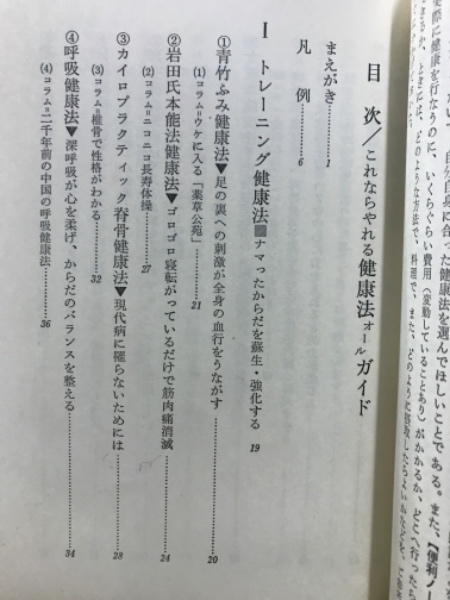 自分自身に合った健康法を選んでほしいことである。また、【便利ノー
実際に健康を行なうのに、いくらぐらい費用(変動していることあり)がかかるか、どこへ行ったら
目次/これならやれる健康法オールガイド
まえがき……1
凡例……6
Ⅰ トレーニング健康法■ナマったからだを蘇生・強化する 19
①青竹ふみ健康法▼足の裏への刺激が全身の血行をうながす……20
(1)コラム=ウケに入る「薬草公苑」……21
②岩田氏本能法健康法▼ゴロゴロ寝転がっているだけで筋肉痛消滅……24
(2)コラム=ニコニコ長寿体操……27
③カイロプラクティック脊骨健康法▼現代病に罹らないためには……28
(3)コラム=椎骨で性格がわかる……32
④呼吸健康法▼深呼吸が心を柔げ、からだのバランスを整える……34
(4)コラム=二千年前の中国の呼吸健康法……36